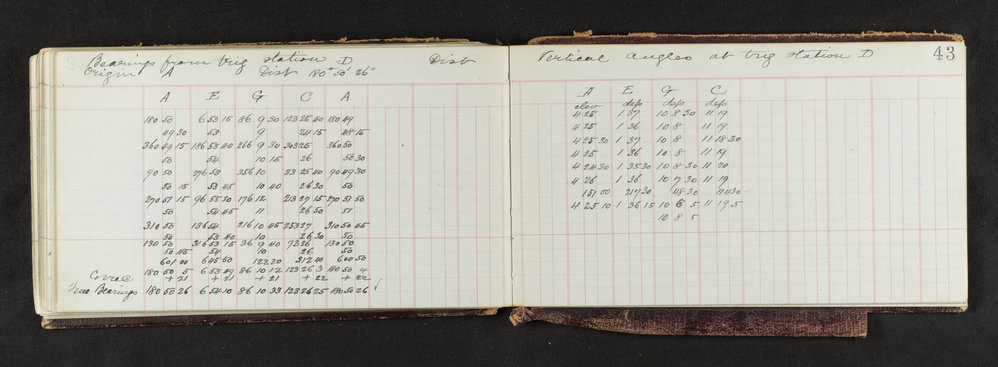 Bearings from trig station D Dist
Origin A Dist 180° 50' 26"
A E G C A
180 50 6 53 15 86 9 30 123 25 40 180 49
49 30 53 9 24 15 48 15
360 49 15 186 53 40 266 9 30 303 25 360 50
50 54 10 15 26 50 30
90 50 276 53 356 10 33 25 40 90 49 30
50 15 53 45 10 40 26 30 50
270 51 15 96 55 30 176 12 213 27 15 270 51 50
50 54 45 11 26 50 51
310 50 136 54 216 10 45 253 27 310 50 45
50 53 40 10 26 30 50
130 50 316 53 15 36 9 40 73 26 130 50
50 45 54 10 26 50
601 00 645 50 122 20 312 40 600 50
180 50 5 6 53 49 86 10 12 123 26 3 180 50 4
Correc + 21 + 21 + 21 + 22 + 22
True Bearings 180 50 26 6 54 10 86 10 33 123 26 25 180 50 26 ✓
Vertical angles at trig station D 43
A E G C
elev dep dep dep
4 25 1 37 10 8 30 11 19
4 25 1 36 10 8 11 19
4 25 30 1 37 10 8 11 18 30
4 25 1 36 10 8 11 19
4 24 30 1 35 30 10 8 30 11 20
4 26 1 36 10 7 30 11 19
151 00 217 30 48 30 114 30
4 25 10 1 36 15 10 8 5 11 19 5
10 8 5